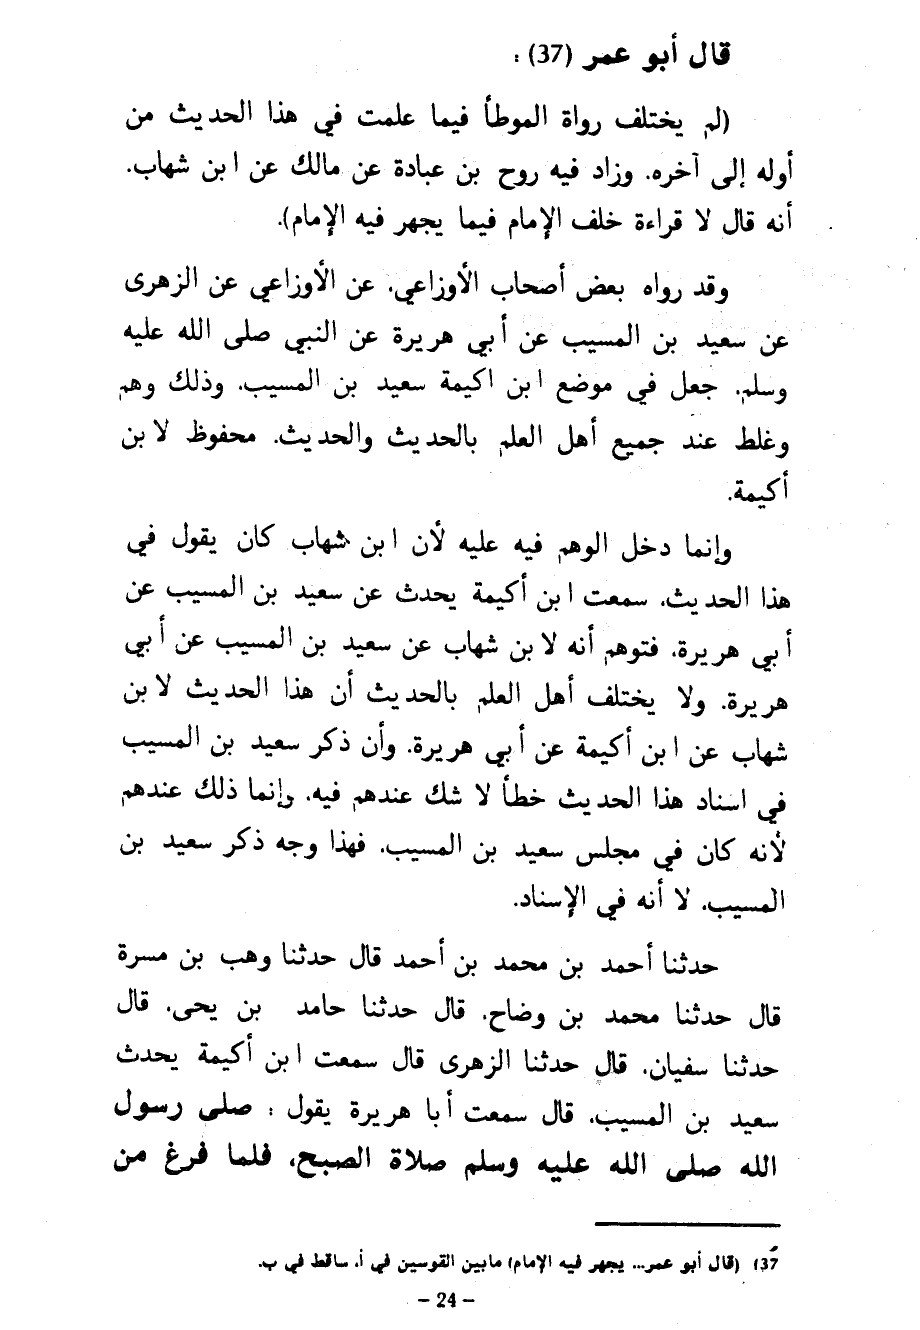 قال أبو عمر (37) :
(لم يختلف رواة الموطأ فيما علمت في هذا الحديث من
أوله إلى آخره. وزاد فيه روح بن عبادة عن مالك عن ابن شهاب.
أنه قال لا قراءة خلف الإمام فيما يجهر فيه الإمام).
وقد رواه بعض أصحاب الأوزاعي. عن الأوزاعي عن الزهرى
عن سعيد بن المسيب عن أبي هريرة عن النبي صلى الله عليه
وسلم. جعل في موضع ابن اكيمة سعيد بن المسيب. وذلك وهم
وغلط عند جميع أهل العلم بالحديث والحديث. محفوظ لابن
أكيمة.
وإنما دخل الوهم فيه عليه لأن ابن شهاب كان يقول في
هذا الحديث. سمعت ابن أكيمة يحدث عن سعيد بن المسيب عن
أبي هريرة. فتوهم أنه لابن شهاب عن سعيد بن المسيب عن أبي
هريرة. ولا يختلف أهل العلم بالحديث أن هذا الحديث لابن
شهاب عن ابن أكيمة عن أبي هريرة. وأن ذكر سعيد بن المسيب
في اسناد هذا الحديث خطأ لا شك عندهم فيه. وإنما ذلك عندهم
لأنه كان في مجلس سعيد بن المسيب. فهذا وجه ذكر سعيد بن
المسيب. لا أنه في الإسناد.
حدثنا أحمد بن محمد بن أحمد قال حدثنا وهب بن مسرة
قال حدثنا محمد بن وضاح. قال حدثنا حامد بن يحى. قال
حدثنا سفيان. قال حدثنا الزهرى قال سمعت ابن أكيمة يحدث
سعيد بن المسيب. قال سمعت أبا هريرة يقول : صلى رسول
الله صلى الله عليه وسلم صلاة الصبح، فلما فرغ من
37) (قال أبو عمر... يجهر فيه الإمام) مابين القوسين في أ. ساقط في ب.
– 24 –